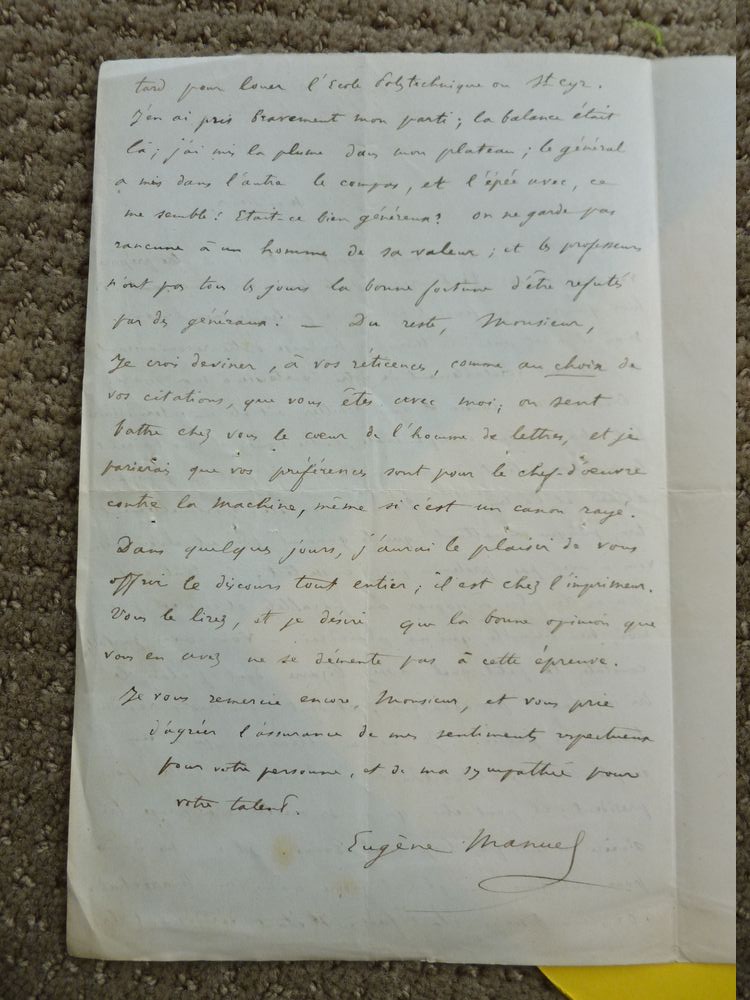 tard pour louer l'École Polytechnique ou St Cyr.
J'en ai pris bravement mon parti ; la balance était
là ; j'ai mis la plume dans mon plateau ; le général
a mis dans l'autre le compas, et l'épée avec, ce
me semble ! Etait-ce bien généreux ? on ne garde pas
rancune à un homme de sa valeur ; et les professeurs
n'ont pas tous les jours la bonne fortune d'être refutés
par des généraux ! — Du reste, Monsieur,
Je crois deviner, à vos réticences, comme au choix de
vos citations, que vous êtes avec moi ; on sent
battre chez vous le cœur de l'homme de lettres, et je
parierais que vos préférences sont pour le chef-d'œuvre
contre la machine, même si c'est un canon rayé.
Dans quelques jours, j'aurai le plaisir de vous
offrir le discours tout entier ; il est chez l'imprimeur.
Vous le lirez, et je désire que la bonne opinion que
vous en avez ne se démente pas à cette épreuve.
Je vous remercie encore, Monsieur, et vous prie
d'agréer l'assurance de mes sentiments respectueux
pour votre personne, et de ma sympathie pour
votre talent.
Eugène Manuel